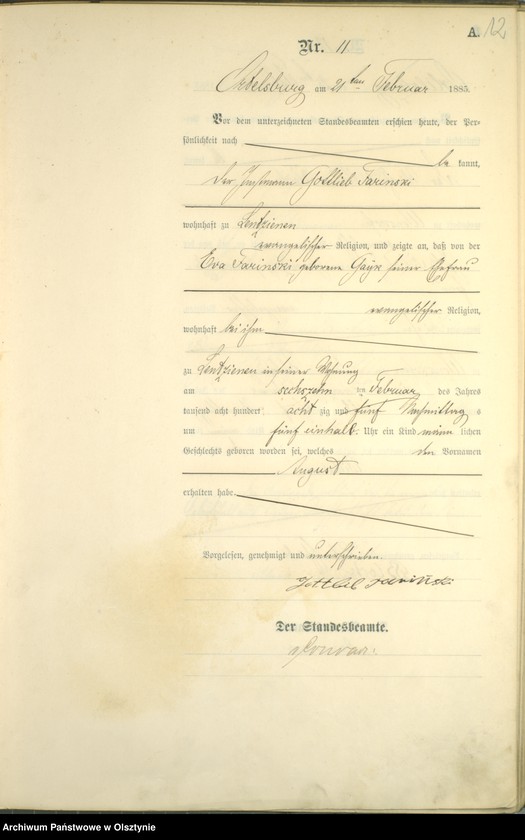 A. 12
Nr. 11
Ortelsburg am 21 ten Februar 1885.
Vor dem unterzeichneten Standesbeamten erschien heute, der Per-
sönlichkeit nach
be kannt,
der Instmann Gottlieb Farinski
wohnhaft zu Lentzienen
evangelischer Religion, und zeigte an, daß von der
Eva Farinski geborene Gayk seiner Ehefrau
evangelischer Religion,
wohnhaft bei ihm
zu Lentzienen in seiner Wohnung
am sechszehn ten Februar des Jahres
tausend acht hundert acht zig und fünf Nachmittag s
um fünf einhalb Uhr ein Kind männ lichen
Geschlechts geboren worden sei, welches den Vornamen
August
erhalten habe.
Vorgelesen, genehmigt und unterschrieben.
Gottlieb Farinski
Der Standesbeamte.
Archiwum Państwowe w Olsztynie